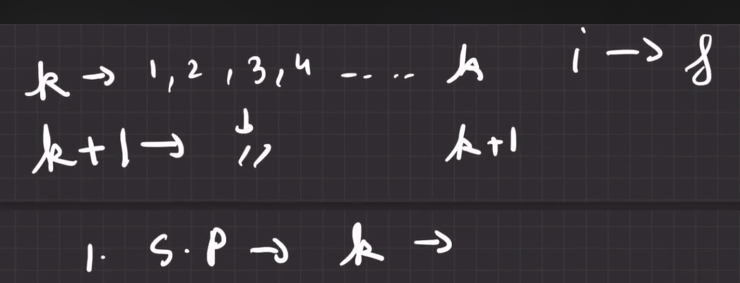 k → 1, 2, 3, 4 ----.. k i → j
k+1 → ↓ ,, k+1
1. S.P → k →